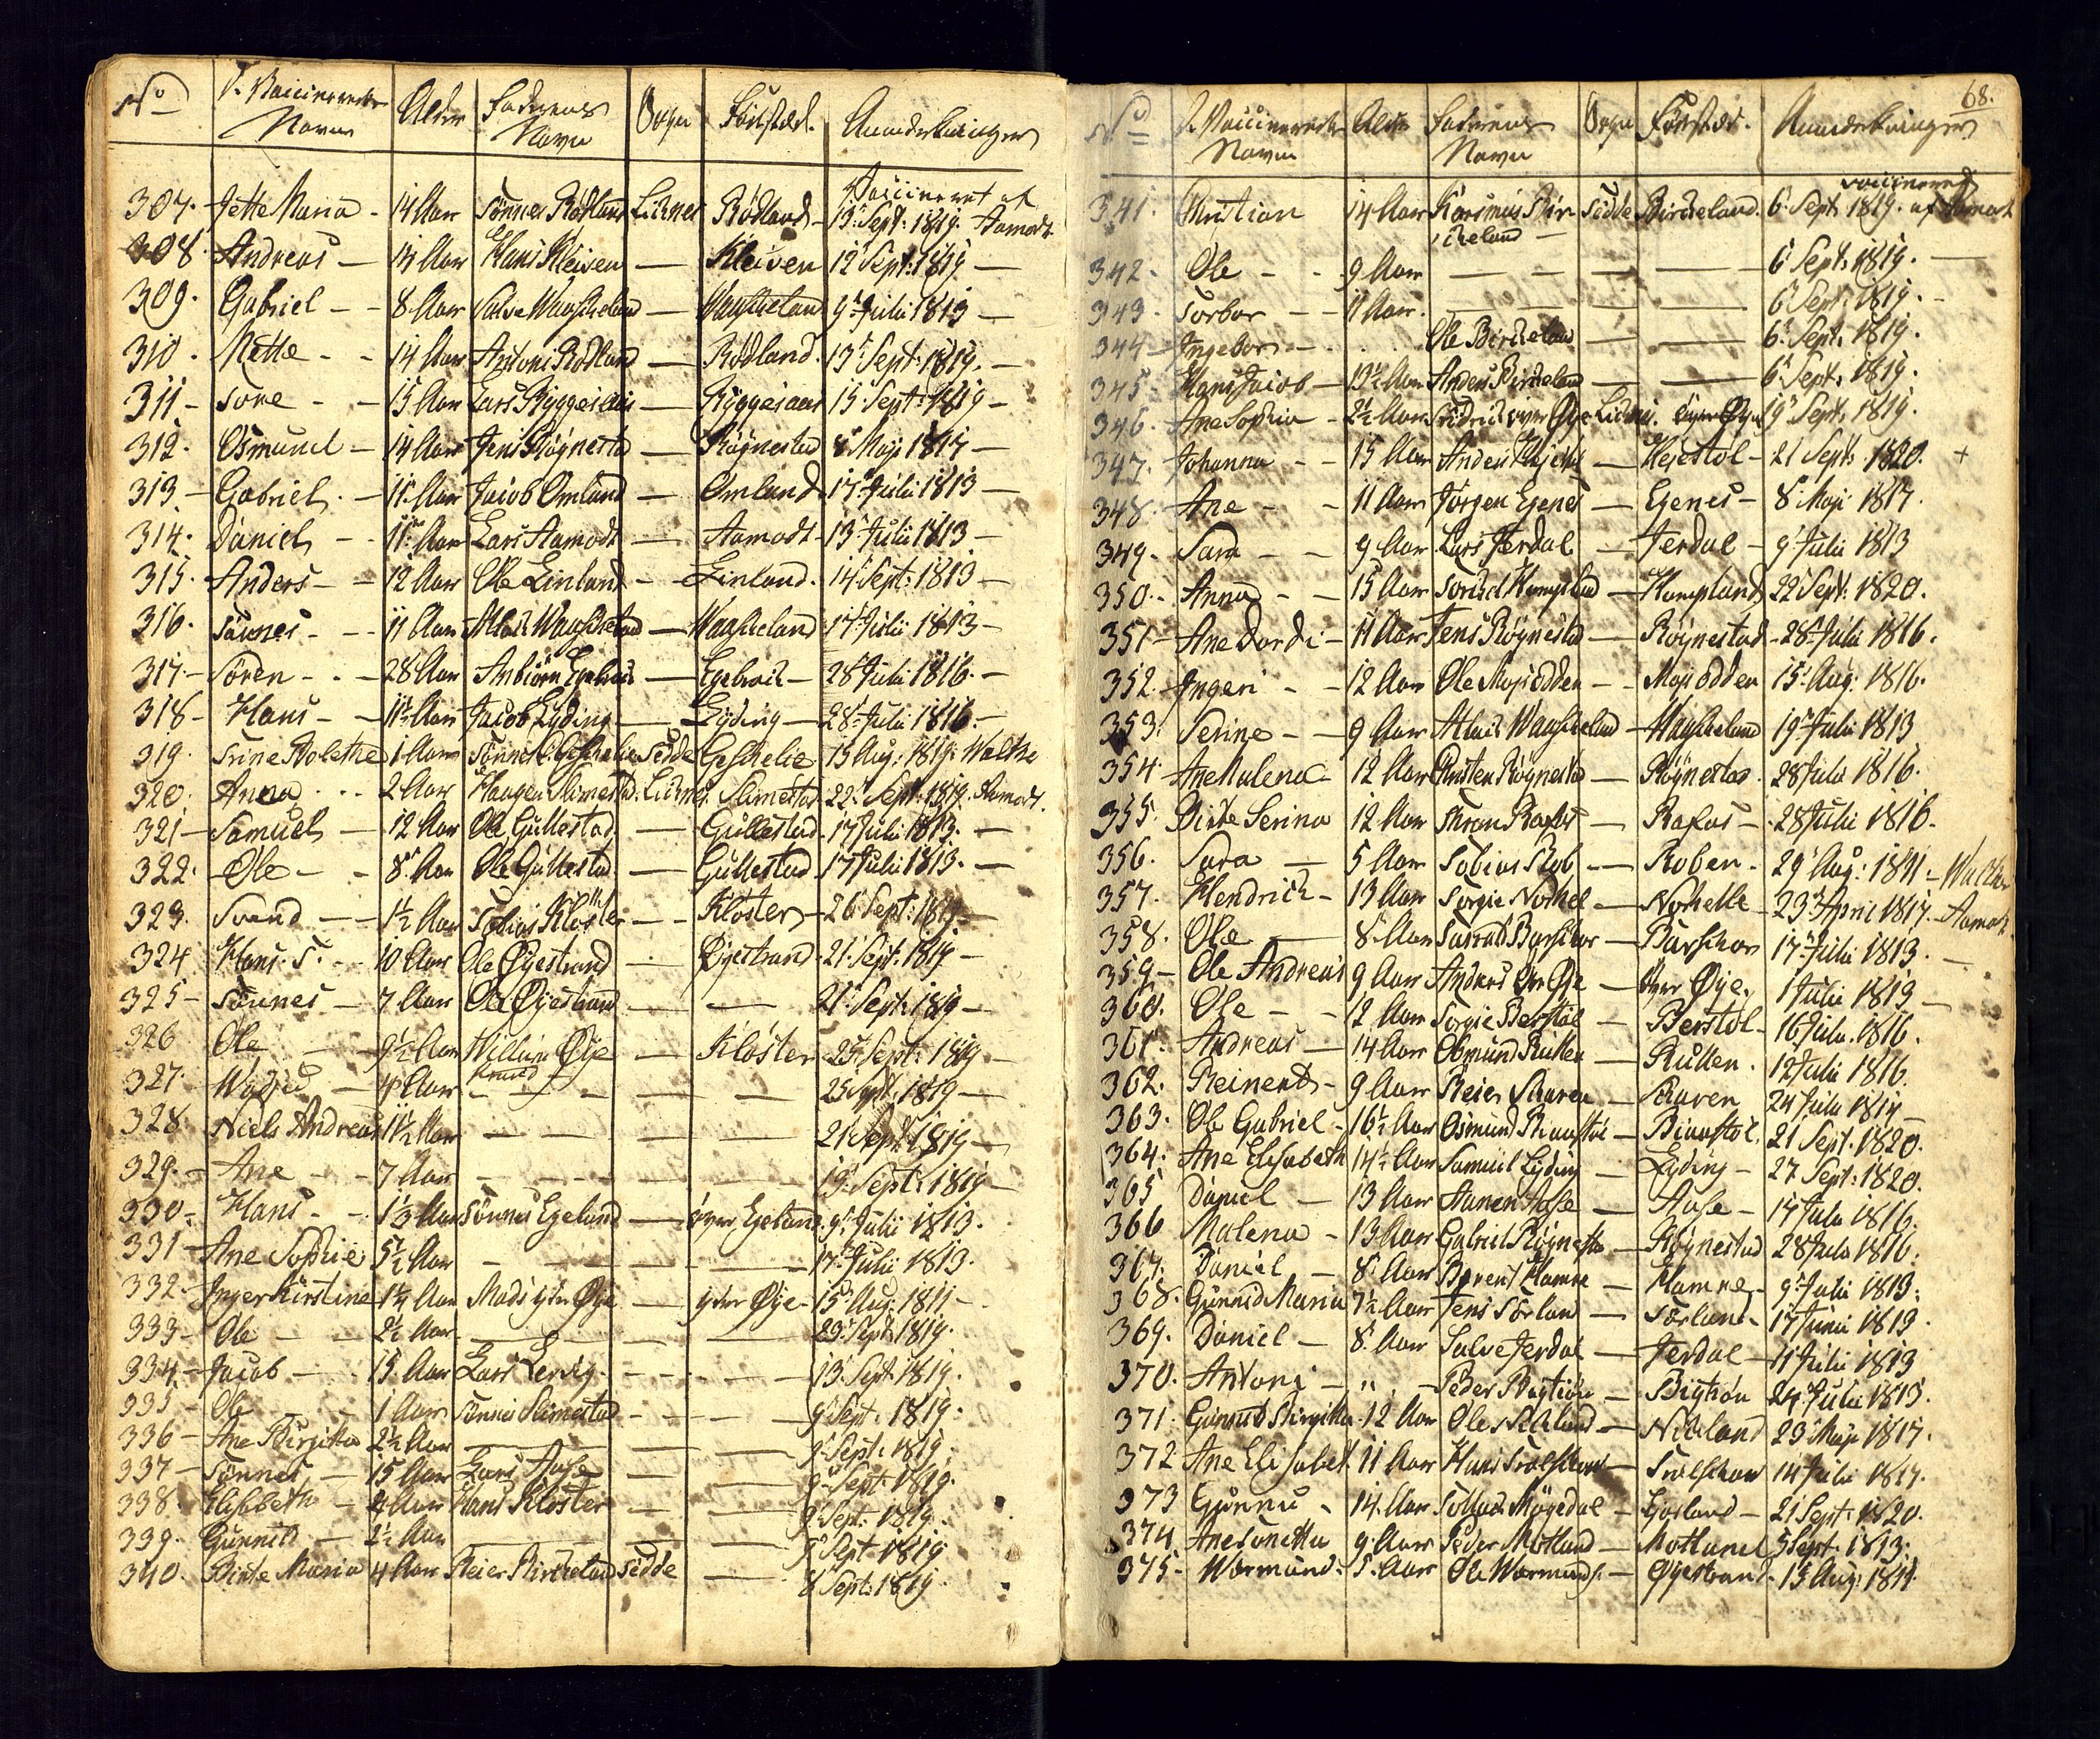 No d. Vaccineredes Navn Alder Faderens Navn Sogn Födested. Anmærkninger
Vaccineret af
307. Jette Maria - 14 Aar Tönnes Rödland Liknes Rödland - 13 Sept: 1819. Aamodt
308. Andreas - 14 Aar Hans Kleiven - Kleiven 12 Sept: 1819 -
309. Gabriel - - 8 Aar Salve Waaskeland - Waaskeland 9 Julii 1813 -
310. Mette - - 14 Aar Antoni Rödland - Rödland. 13 Sept: 1819. -
311 - Tore - - 15 Aar Lars Ryggesaas - Ryggesaas 15 Sept: 1819 -
312. Osmund - 14 Aar Jens Röynestad - Röynestad 8 Maji 1817 -
313. - Gabriel. - 11 Aar Jacob Omland - Omland 17 Julii 1813 -
314. Daniel - - 11 Aar Lars Aamodt - Aamodt - 13 Julii 1813 -
315. Anders - - 12 Aar Ole Linland - - Linland. 14 Sept: 1813 -
316. Tönnes - - - 11 Aar Atlak Waaskeland - Waaskeland 17 Julii 1813 -
317. - Sören - - - 28 Aar Anbiörn Egebak - Egebak - 28 Julii 1816. -
318 - Hans - - 11½ Aar Jacob Lyding - Lyding - 28 Julii 1816. -
319. Trine Bolethe 1 Aar Tönnes Geskelie Fedde Geskelie 13 Aug: 1819. Walthe
320. Anna - - - 2 Aar Haagen Slimestad Liknes Slimestad 22 Sept: 1819. Aamodt.
321 - Samuel - 12 Aar Ole Gullestad - Gullestad - 17 Julii 1813. -
322. Ole - - 8 Aar Ole Gullestad - Gullestad 17 Julii 1813. -
323. Svend - - 1½ Aar Tobias Kloster - - Kloster - 26 Sept: 1819 -
324 Hans T. - - 10 Aar Ole Öyestrand - Öyestrand - 21 Sept: 1819 -
325 - Tönnes - 7 Aar Ole Öyestrand - - 21 Sept: 1819 -
326 Ole - 9½ Aar Willum Öye - Kloster 25 Sept: 1819 -
327. - 4 Aar - - - - 25 Sept. 1819 -
328. Niels Andreas 11½ Aar - - - - 21 Sept. 1819 -
329. - Ane - - 7 Aar - - - - 19 Sept: 1819 -
330. Hans - - 1½ Aar Tönnes Egeland - över Egeland. 9 Julii 1813.
331 - Ane Sophie 5½ Aar - - - - 17 Julii 1813.
332. Inger Kirstine 1¼ Aar Mads yter Öye - yter Öye - 15 Aug. 1811 -
333 - Ole - - 2½ Aar - - - 23 Sept. 1819.
334. - Jacob - - 15 Aar Lars Lervig. - - - - - 13 Sept. 1819.
335 - Ole 1 Aar Tönnes Slimestad - - - - 9 Sept. 1819.
336 - Ane Birgitta 2½ Aar - - - 9 Sept. 1819.
337 - Tönnes - 15 Aar Lars Aase - - 9 Sept. 1819.
338. Elisabeth - 4 Aar Hans Kloster - - 9 Sept. 1819.
339. Gunnild - 2½ Aar - - - 9 Sept 1819
340. Birte Maria 4 Aar Reier Birkeland Fedde - 8 Sept: 1819.
68.
No d. Vaccineredes Navn Alder Faderens Navn Sogn Födested. Anmærkninger
vaccineret
341. Christian 14 Aar Rasmus Birkeland - Fedde Birkeland. 6 Sept. 1819. af Aamodt
342. Ole - - 9 Aar - - - - 6 Sept. 1819. -
343. Torbor - - 11 Aar. - - - - 6 Sept. 1819. -
344 - Ingebor - - . . Ole Birkeland - - 6 Sept. 1819.
345 - Hans Jacob - 13½ Aar Anders Birkeland - - 6 Sept. 1819.
346. Ane Sophia - 2½ Aar Fridrik över Öye Liknes. över Öye 19 Sept. 1819.
347. Johanna - - 15 Aar Anders - 21 Sept: 1820. +
348. Ane - - 11 Aar Jörgen Egenes - Egenes - 8 Maji 1817.
349. Sara - - 9 Aar Lars Jerdal - Jerdal - 9 Julii 1813
350. - Anna - - 15 Aar Kompland - Kompland 22 Sept: 1820.
351 - Ane Dordi - 11 Aar Jens Röynestad - Röynestad - 28 Julii 1816.
352. - Ingeri - - 12 Aar Ole Mosjodden - - Mosjodden 15 Aug: 1816.
353. Serine - - 9 Aar Atlak Waaskeland - Waaskeland 19 Julii 1813
354. Ane Malena - 12 Aar Christen Röynestad - Röynestad. 28 Julii 1816.
355. Birte Serina 12 Aar Rafos - Rafos - 28 Julii 1816.
356. Sara - 5 Aar Tobias Rob - - Roben. 29 Aug: 1811 - Walthe
357. Hendrich - 13 Aar Torgie Norhel - Norhelle - 23 April 1817 - Aamodt
358. Ole - 8 Aar Barskor - Barskor 17 Julii 1813. -
359 - Ole Andreas 9 Aar Anders över Öye - över Öye. 1 Julii 1813 -
360. Ole - - 12 Aar Torgie Berstöl - Berstöl - 16 Julii. 1816.
361. Andreas - 14 Aar Osmund Rullen - Rullen. 12 Julii 1816.
362. Reinert - 9 Aar Reier Skaaren - Skaaren 24 Julii 1814 -
363. Ole Gabriel - 16½ Aar Osmund - 21 Sept. 1820.
364. Ane Elisabeth 14½ Aar Samuel Lyding - Lyding - 27 Sept: 1820.
365 Daniel - 13 Aar Hanen Aase - Aase - 17 Julii 1816.
366 Malena - 13 Aar Gabriel Röynestad - Röynestad 28 Julii 1816.
367. Daniel - 8 Aar Berent Hamre - Hamre - 9 Julii 1813.
368. Gunnild Maria 7½ Aar Jens Sörland - Sörland. 17 Junii 1813.
369. Daniel - 8 Aar Salve Jerdal - Jerdal - 11 Julii 1813
370. Antoni - " - Peder - 24 Julii 1813.
371. Gunnild Birgitta 12 Aar Ole Nedland - Nedland 23 Maji 1817.
372 Ane Elisabet 11 Aar Hans - 14 Julii 1817.
373 Gunnu - 14 Aar - 21 Sept: 1820.
374 Ane Tonetta 9 Aar Peder Motland - Motland 5 Sept. 1813.
375. Wermund. 5 Aar Ole Wermunds. - Öyestrand. 15 Aug: 1811.